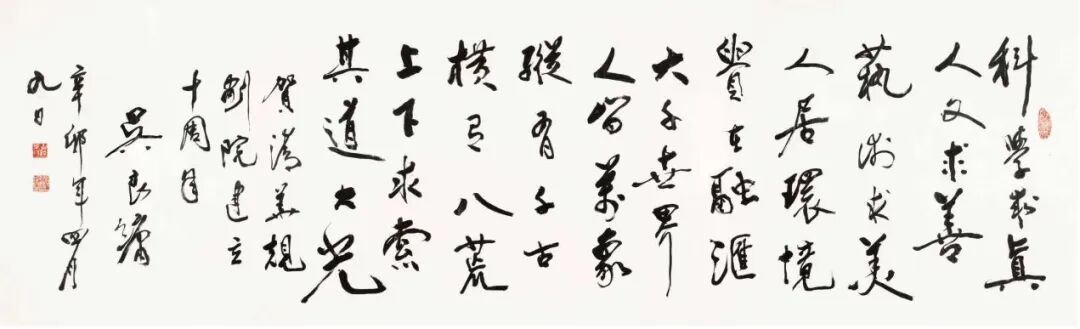 科學求真
人文求善
藝術求美
人居環境
貴在融匯
大千世界
人間萬象
縱有千古
橫有八荒
上下求索
其道大光
賀清華規
劃院建立
十周年
吳良鏞
辛卯年四月
九日